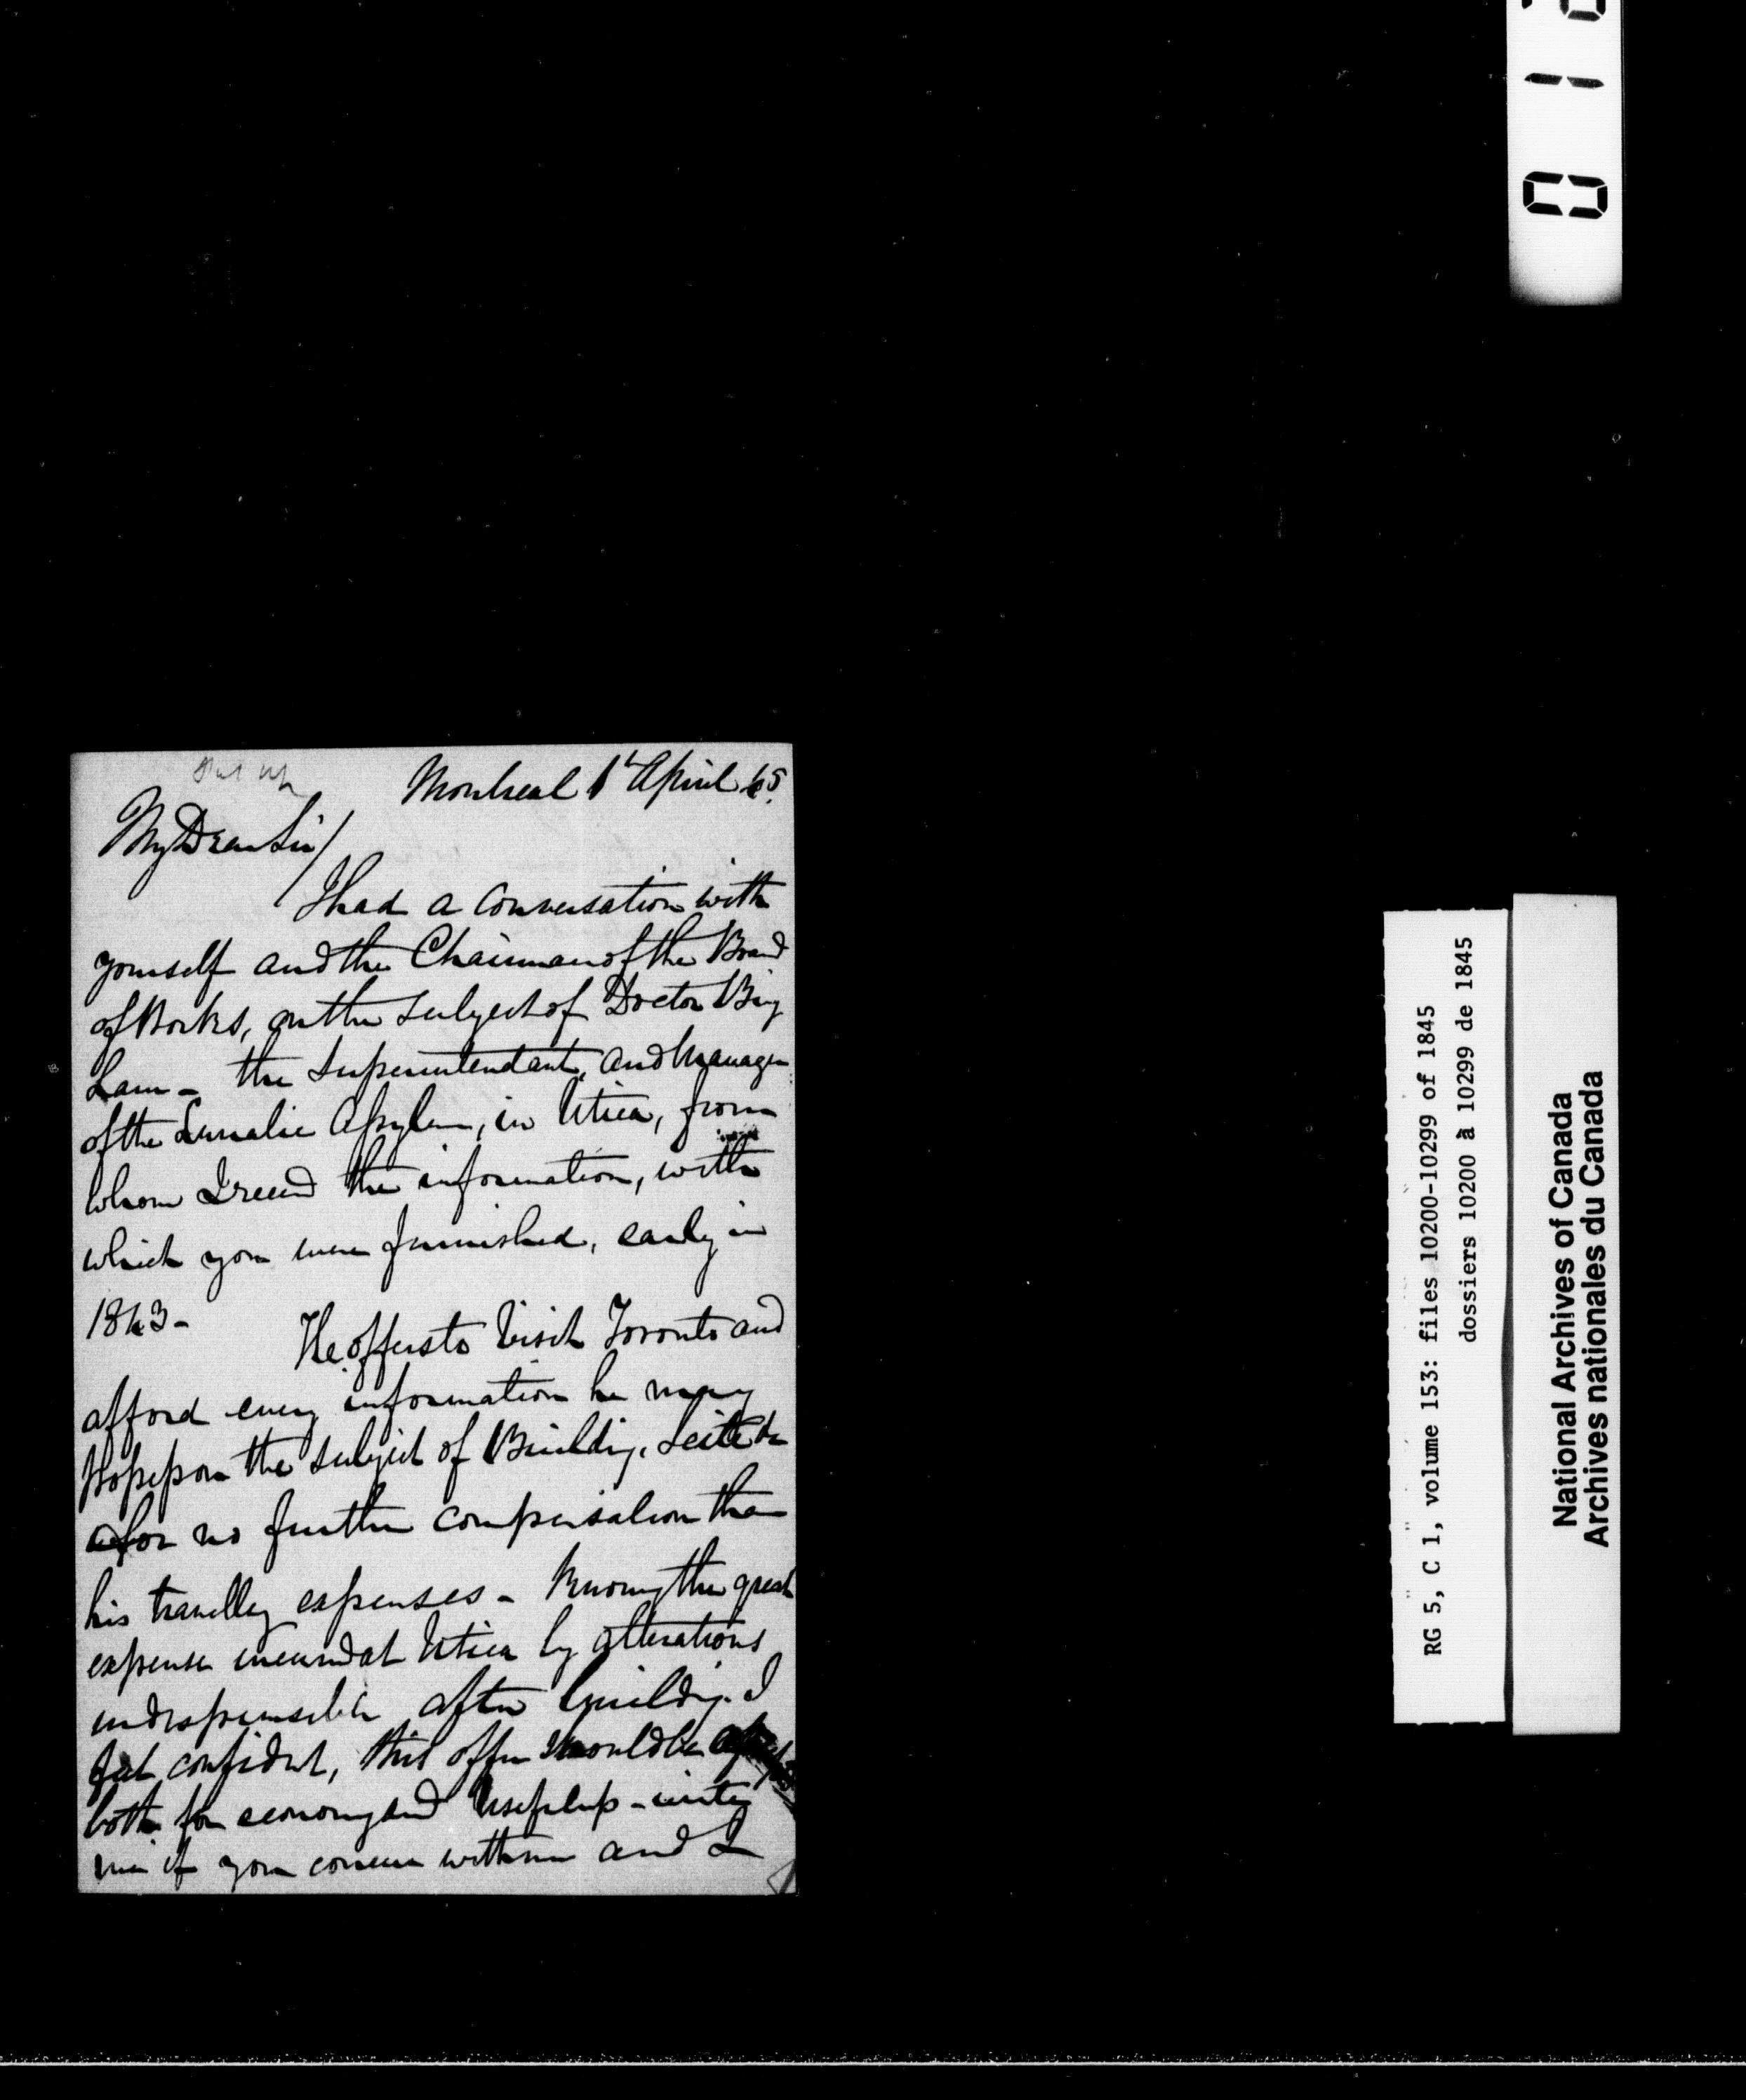 Montreal 1st April 45.
My Dear Sir/
I had a conversation with
yourself and the Chairman of the Board
of Works, on the subject of Doctor Brig
ham - the Superintendant, and Manager
of the Lunatic Asylum, in Utica, from
whom I recevd the information, with
which you were furnished, early in
1843 -
He offers to visit Toronto and
afford every information he may
possess on the subject of Buildig. Scite &c
for no further compensation than
his travellg expenses - Knowig the great
expense incurrd at Utica by alterations
indespensible after buildig. I
feel confidnt, this offer should be
both for economy and usefulness - unite
me if you concur with me and I
0 1
RG 5, C 1, volume 153: files 10200-10299 of 1845
dossiers 10200 à 10299 de 1845
National Archives of Canada
Archives nationales du Canada